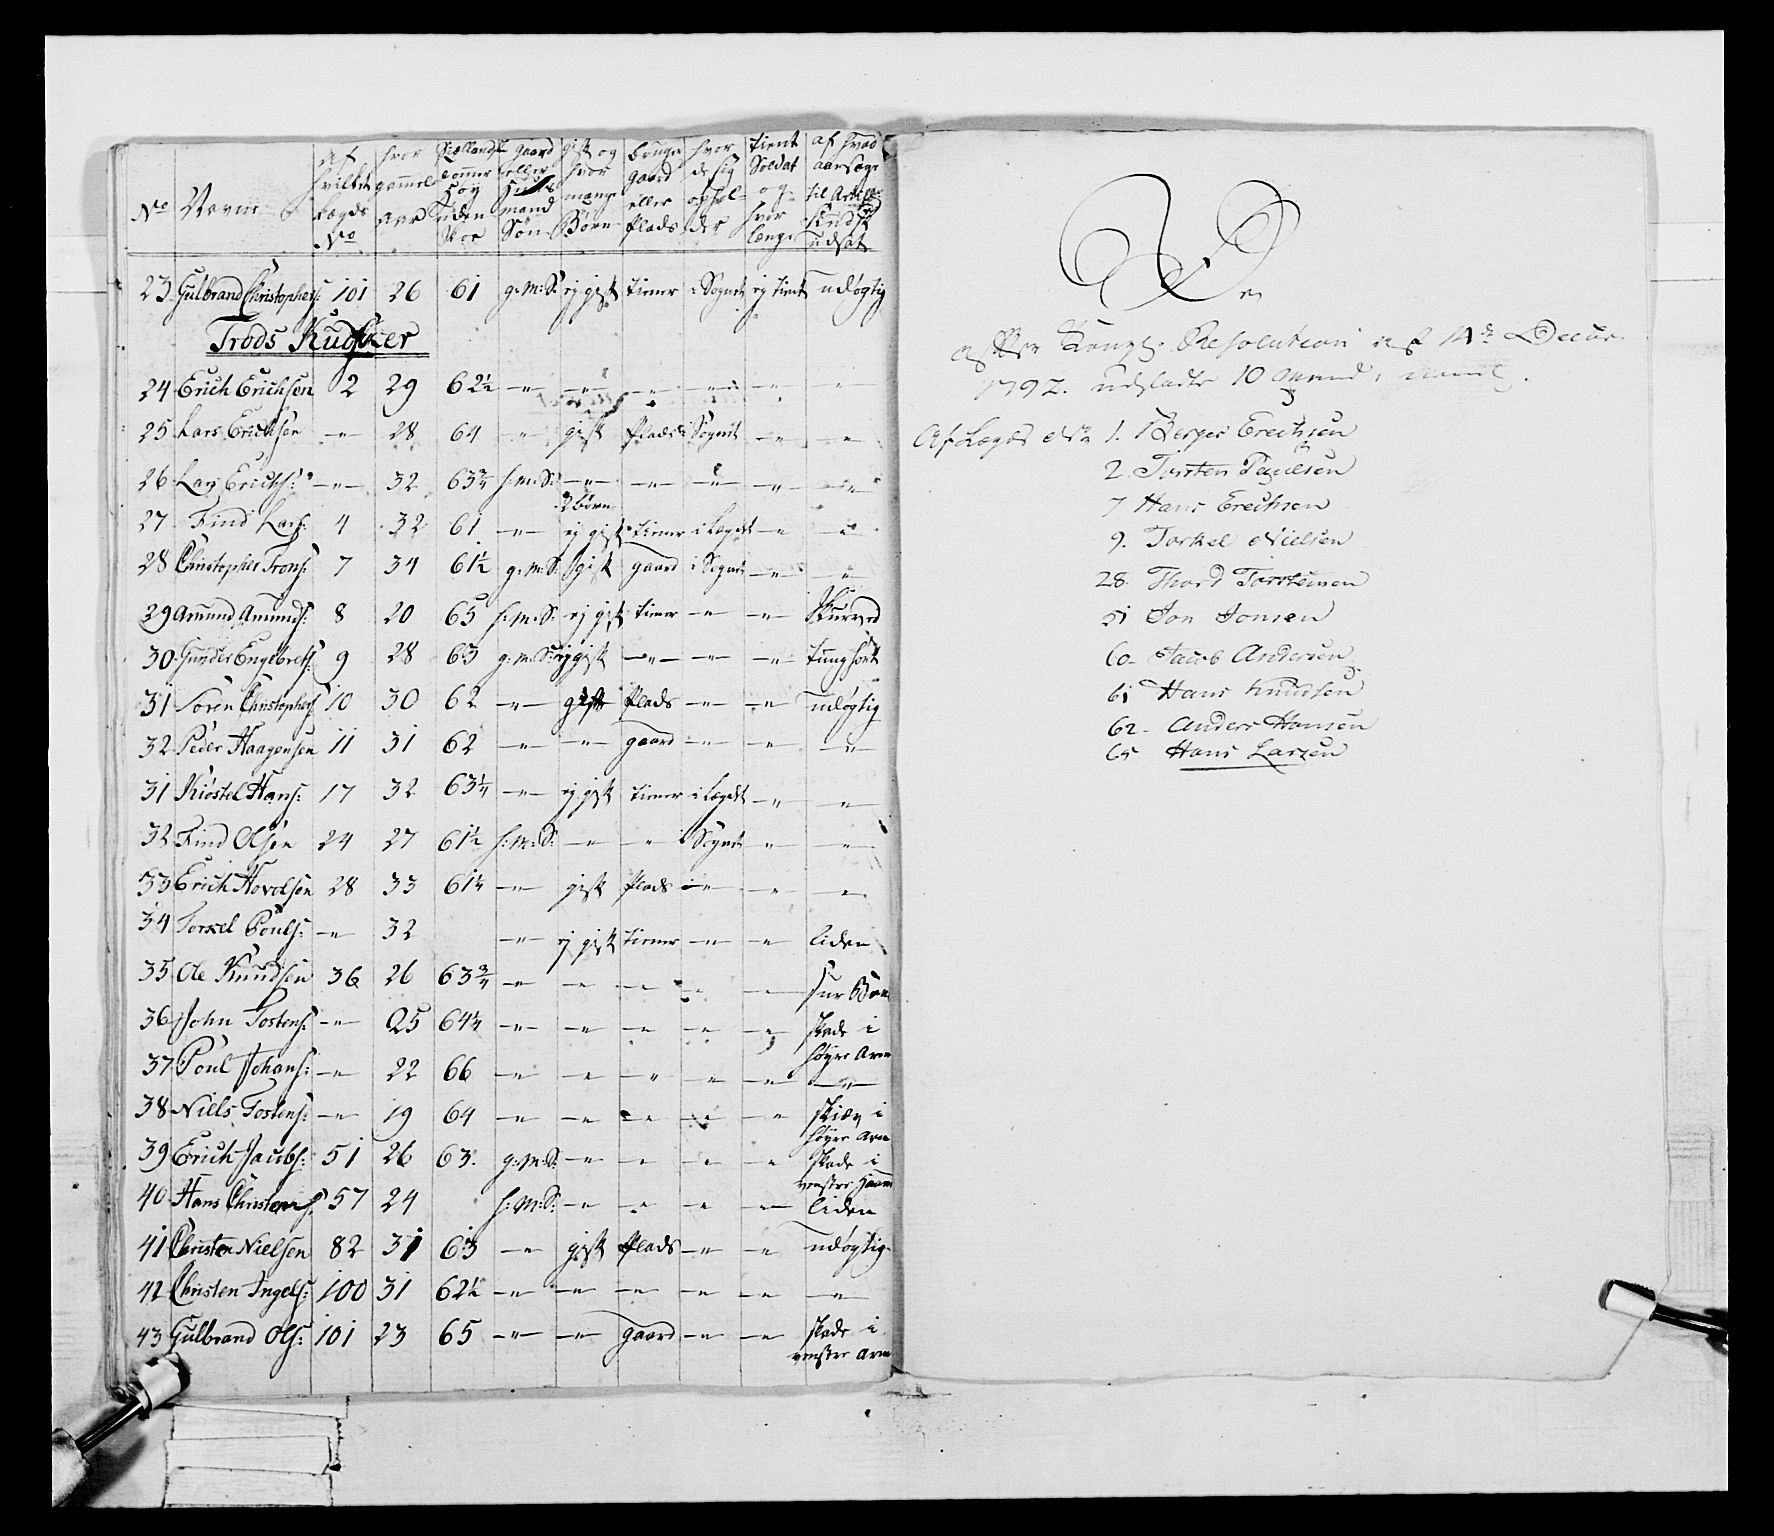 No Navne af hvilket Lægds No hvor gammel aar Siællandske Tommer høy uden Skoe gaard eller Huus mand Søn gift og hvor mange Børn bruger gaard eller Plads hvor de sig ophol- der tient Soldat og hvor længe af hvad aarsage til udsat
23 Gulbrand Christophers: 101 26 61 g:M:S: ej gift tiener i Sognet ej tient udøgtig
Trods Kudsker
24 Erich Erichsen 2 29 62½ —"— —"— —"— —"— —"— "
25 Lars Erichsen —"— 28 64 —"— gift Plads i Sognet —"— —"—
26 Lars Erichs: —"— 32 63¾ h:M:S: —"— —"— —"— —"— —"—
2 børn
27 Find Lars: 4 32 61 —"— ej gift tiener i Lægdet —"— —"—
28 Christopher Trons: 7 34 61½ g:M:S: gift gaard i Sognet —"— —"—
29 Amund Amunds: 8 20 65 h:M:S: ej gift tiener —"— —"— Skurved
30 Gunder Engebrets: 9 28 63 g:M:S: ej gift —"— —"— —"— tunghørt
31 Søren Christophers: 10 30 62 —"— gift Plads —"— —"— udøgtig
32 Peder Haagensen 11 31 62 —"— —"— gaard —"— —"— —"—
31 Kiøstel Hans: 17 32 63¼ —"— ej gift tiener i Lægdet —"— —"—
32 Find Olsen 24 27 61½ h:M:S: —"— " i Sognet " —"—
33 Erich Hovelsen 28 33 61¼ —"— gift Plads —"— —"— —"—
34 Torkel Pouls: —"— 32 —"— ej gift tiener —"— —"— liden
35 Ole Knudsen 36 26 63¾ —"— —"— —"— " —"—
36 John Tostens: —"— 25 64¼ —"— —"— —"— —"— —"— skade i
høyre Arm
37 Poul Johans: —"— 22 66 —"— —"— " —"— —"— —"—
38 Niels Tostens: —"— 19 64 —"— —"— —"— —"— —"— skiæv i
høyre Arm
39 Erich Jacobs: 51 26 63 g:M:S: —"— —"— —"— —"— skade i
venstre Haand
40 Hans Christens: 57 24 h:M:S: —"— —"— —"— —"— liden
41 Christen Nielsen 82 31 63 —"— gift Plads —"— —"— udøgtig
42 Christen Ingels: 100 31 62½ —"— —"— —"— —"— —"— —"—
43 Gulbrand Ols: 101 23 65 —"— —"— gaard —"— —"— skade i
venstre Arm
De
efter Kongl: Resolution af 14de Decbr
1792. udsladte 10 Mand,
Af Lægds No 1. Berger Erechsen
2. Torsten Paulsen
7 Hans Erechsen
9. Torkel Nielsen
28. Thord Torstensen
51 Jon Jonsen
60. Jacob Andersen
61 Hans Knudsen
62. Anders Hansen
65 Hans Larsen